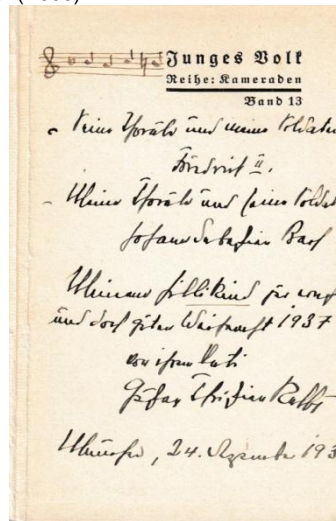 Junges Volk
Reihe: Kameraden
Band 13
Choräle und meine Soldaten
Friedrich II.
- Meine Choräle und seine Soldat
Johann Sebastian Bach
Meinem
und doch guten Weihnacht 1937
von ihrem Vati
Christian
München, 24. Dezember 193